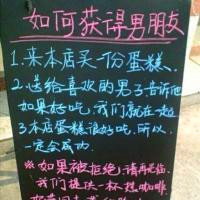 如何获得男朋友
1.来本店买一份蛋糕、
2.送给喜欢的男子告诉他
如果好吃，我们就在一起
3.本店蛋糕很好吃，所以，
一定会成功.
※如果被拒绝，请再光临
我们提供一杯热咖啡